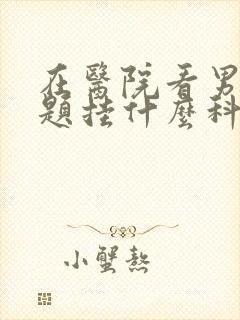 在醫院看男
題挂什麼科
小蟹熬